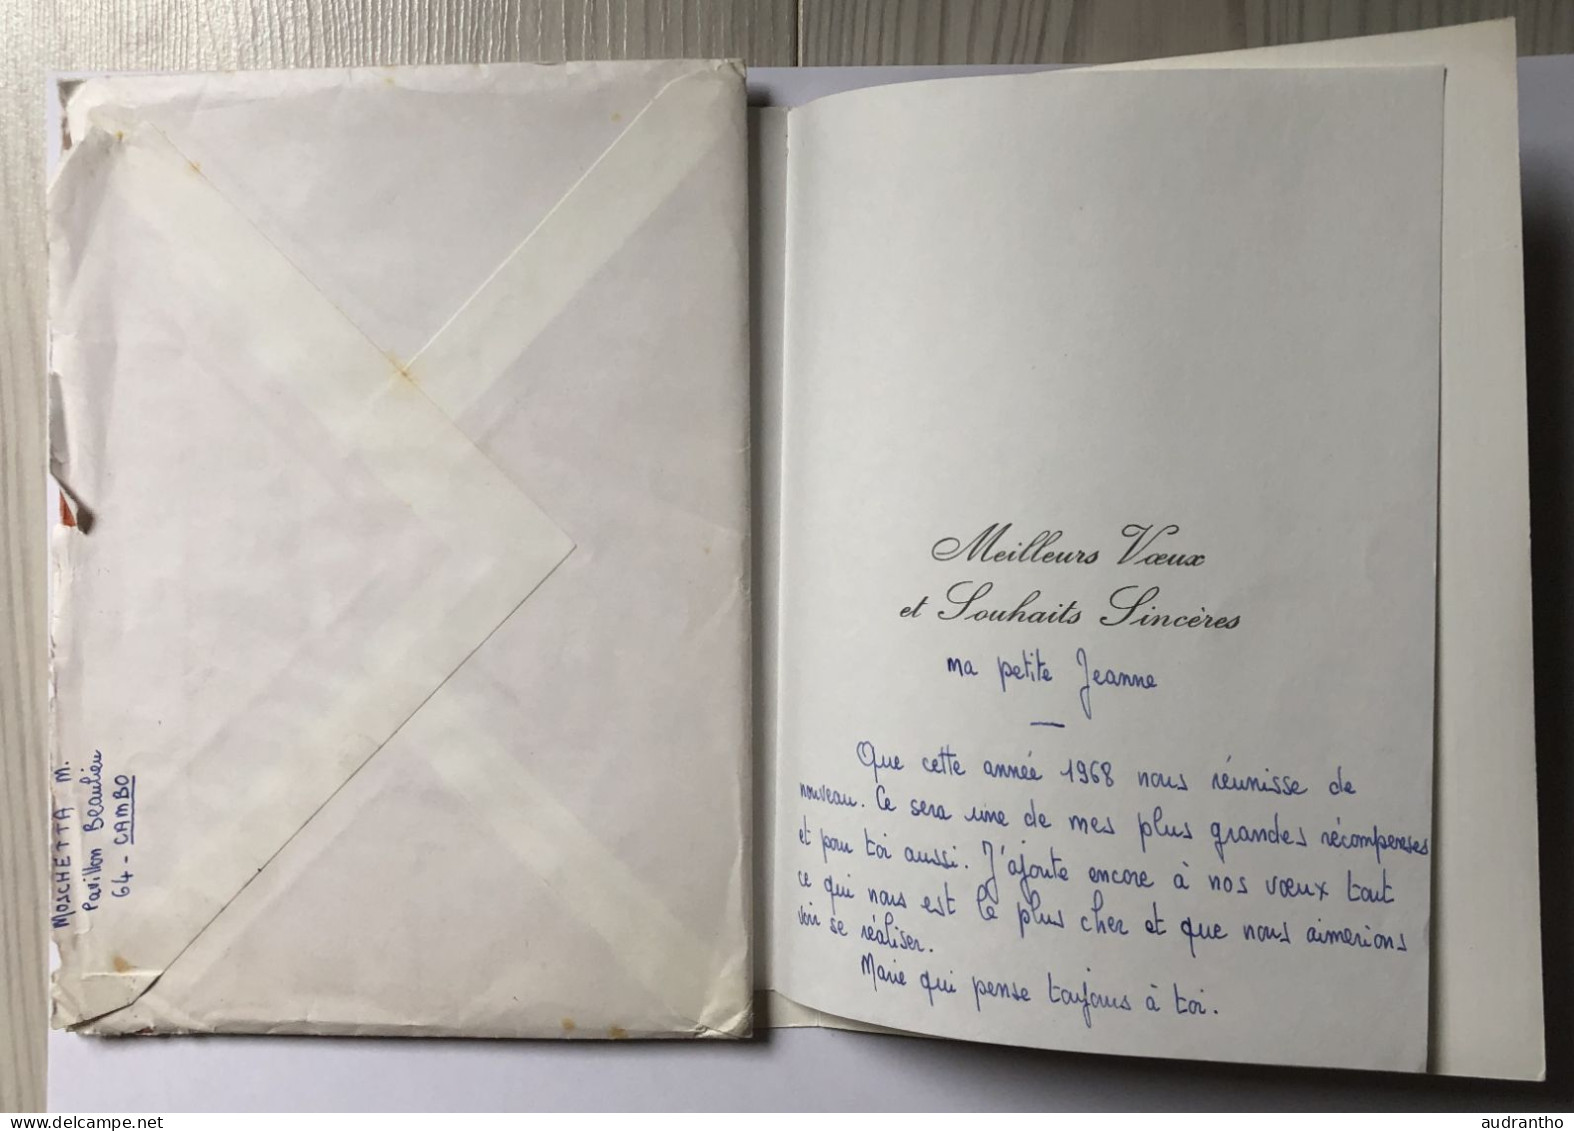 MOSCHETTA M.
Pavillon Beaulieu
64 - CAMBO
Meilleurs Vœux
et Souhaits Sincères
ma petite Jeanne
—
Que cette année 1968 nous réunisse de
nouveau. Ce sera une de mes plus grandes récompenses
et pour toi aussi. J'ajoute encore à nos vœux tout
ce qui nous est le plus cher et que nous aimerions
voir se réaliser.
Marie qui pense toujours à toi.
www.delcampe.net
audrantho